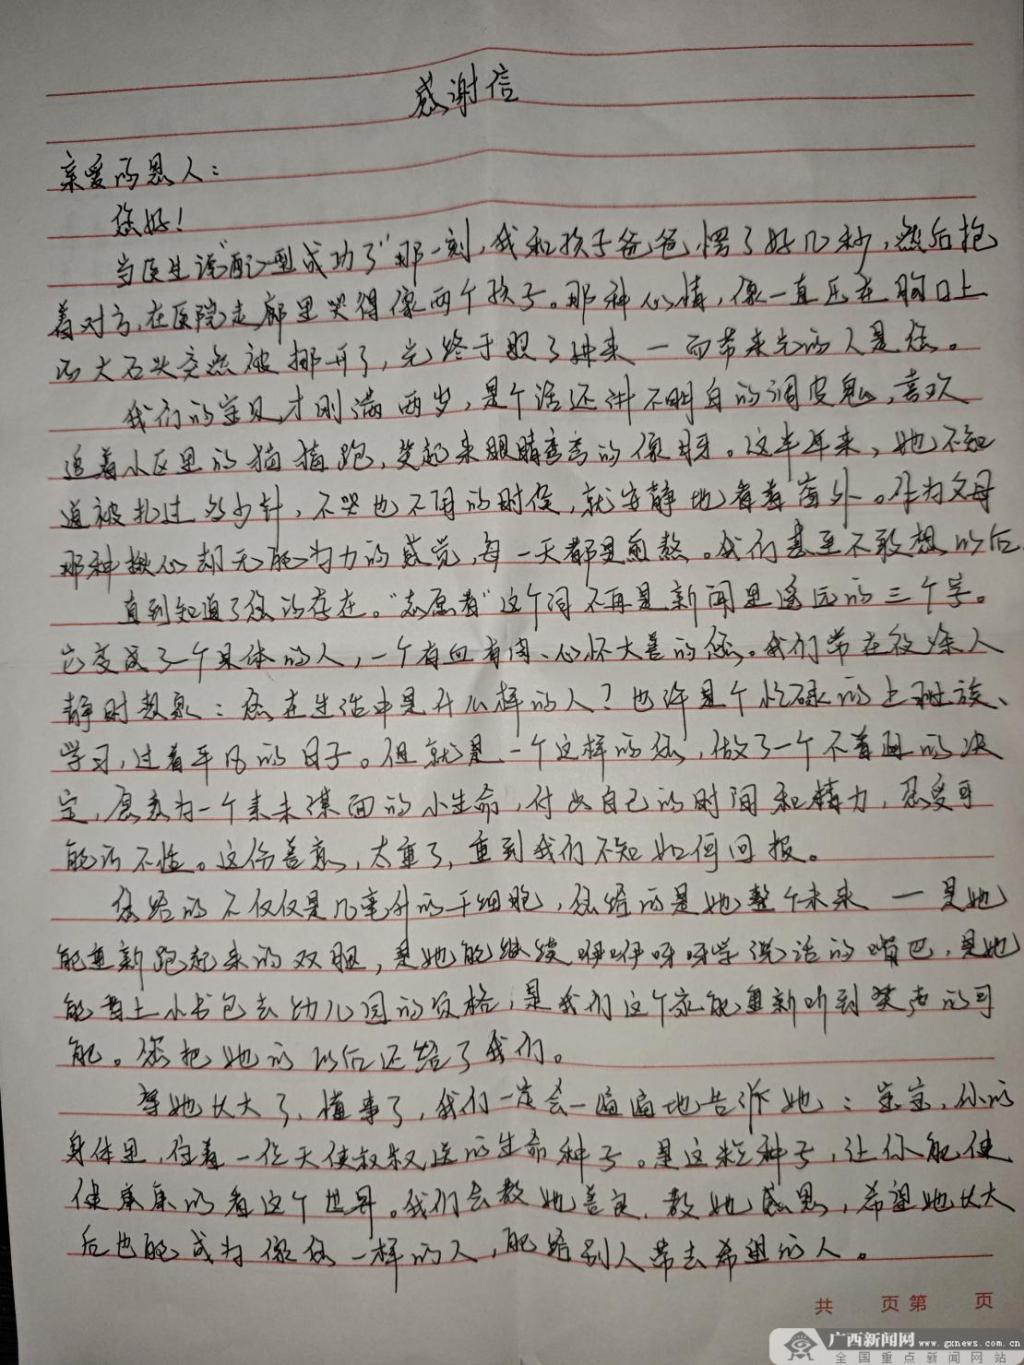 感谢信
亲爱的恩人：
您好！
当医生说“配型成功了”那一刻，我和孩子爸爸愣了好几秒，然后抱
着对方，在医院走廊里哭得像两个孩子。那种心情，像一直压在胸口上
的大石头突然被挪开了，光终于照了进来——而带来光的人是您。
我们的宝贝才刚满两岁，是个话还讲不明白的调皮鬼，喜欢
追着小区里的猫猫跑，笑起来眼睛弯弯的像月牙。这半年来，她不知
道被扎过多少针，不哭也不闹的时候，就安静地看着窗外。作为父母
那种揪心却无能为力的感觉，每一天都是煎熬。我们甚至不敢想以后
直到知道了您的存在。“志愿者”这个词不再是新闻里遥远的三个字。
它变成了一个具体的人，一个有血有肉、心怀大善的您。我们常在夜深人
静时默念：您在生活中是什么样的人？也许是个忙碌的上班族、
学习，过着平凡的日子。但就是一个这样的您，做了一个不普通的决
定，愿意为一个素未谋面的小生命，付出自己的时间和精力，忍受可
能的不适。这份善意，太重了，重到我们不知如何回报。
您给的不仅仅是几毫升的干细胞，您给的是她整个未来——是她
能重新跑起来的双腿，是她能继续咿咿呀呀学说话的嘴巴，是她
能背上小书包去幼儿园的资格，是我们这个家能重新听到笑声的可
能。您把她的以后还给了我们。
等她长大了，懂事了，我们一定会一遍遍地告诉她：宝宝，你的
身体里，住着一位天使叔叔送的生命种子。是这粒种子，让你能健
健康康的看这个世界。我们会教她善良，教她感恩，希望她长大
后也能成为像您一样的人，能给别人带去希望的人。
共 页第 页
广西新闻网 www.gxnews.com.cn
全国重点新闻网站